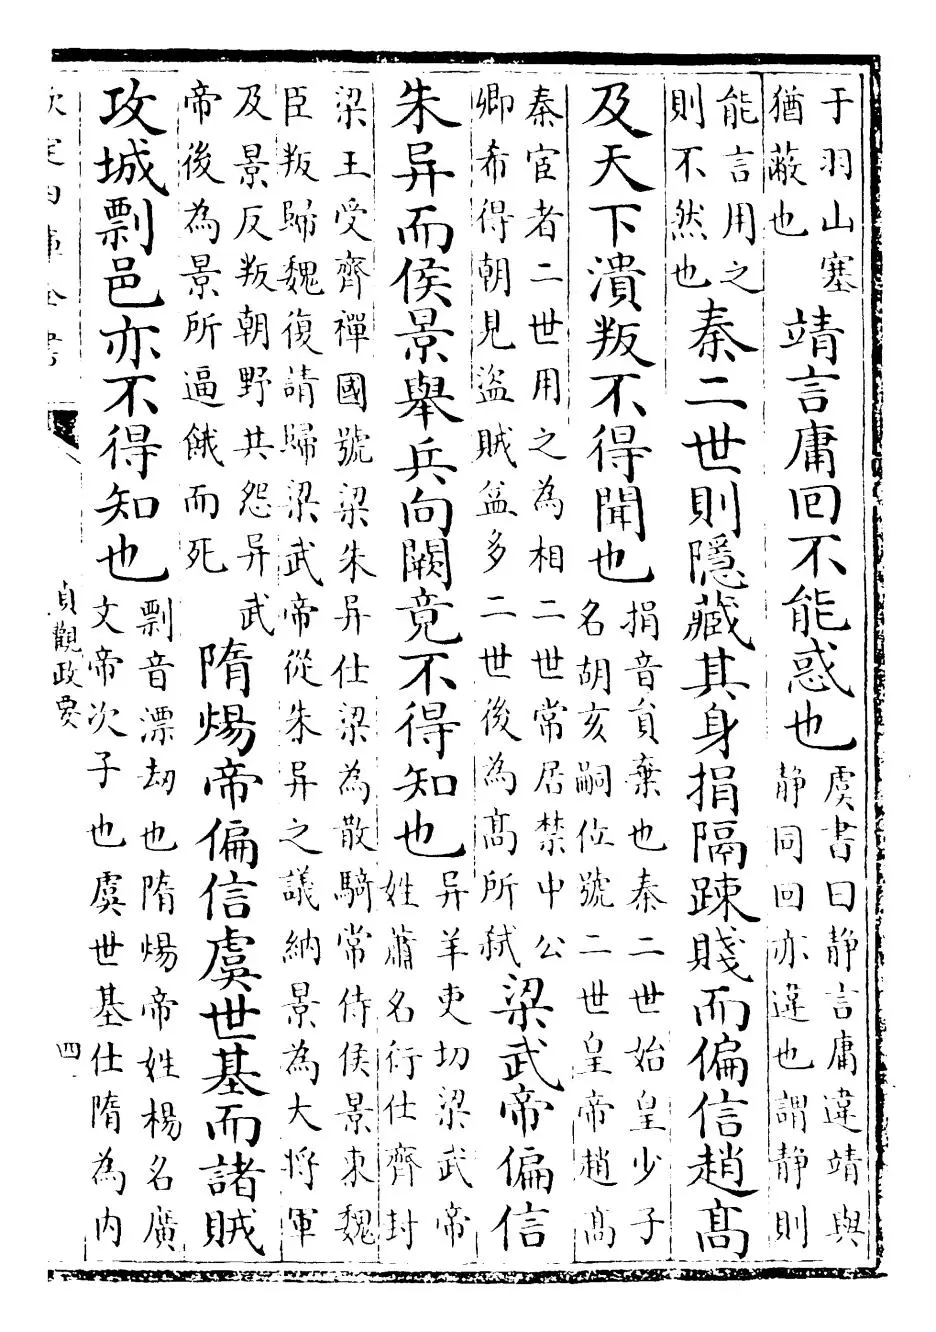 于羽山塞
猶蔽也
靖言庸回不能惑也
虞書曰静言庸違靖與
静同回亦違也謂静則
能言用之
則不然也
秦二世則隱藏其身捐隔踈賤而偏信趙髙
及天下潰叛不得聞也
捐音貟棄也秦二世始皇少子
名胡亥嗣位號二世皇帝趙髙
秦宦者二世用之為相二世常居禁中公
卿希得朝見盗賊益多二世後為髙所弑
梁武帝偏信
朱异而侯景舉兵向闕竟不得知也
异羊吏切梁武帝
姓蕭名衍仕齊封
梁王受齊禪國號梁朱异仕梁為散騎常侍侯景東魏
臣叛歸魏復請歸梁武帝從朱异之議納景為大將軍
及景反叛朝野共怨异武
帝後為景所逼餓而死
隋煬帝偏信虞世基而諸賊
攻城剽邑亦不得知也
剽音漂劫也隋煬帝姓楊名廣
文帝次子也虞世基仕隋為内
欽定四庫全書
貞觀政要
四